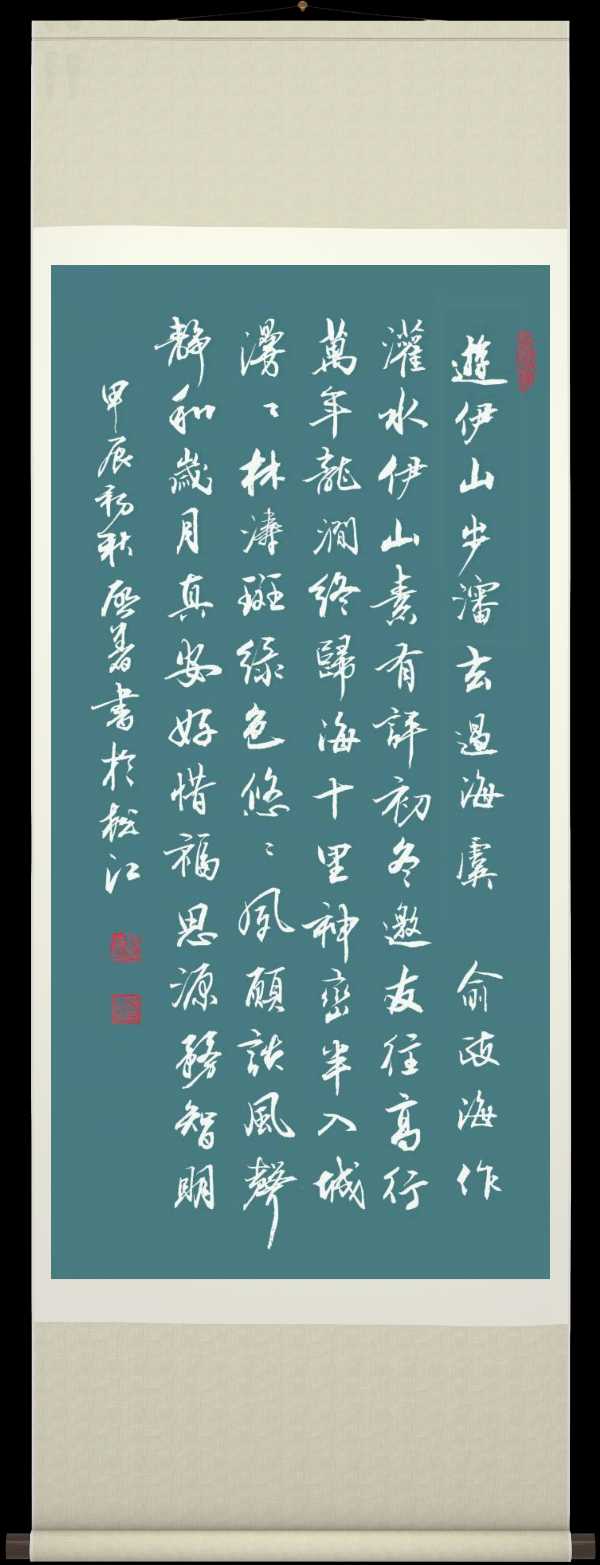 遊伊山步瀋玄過海虞 俞政海作
灌水伊山素有評初冬邀友往高行
萬年龍澗終歸海十里神巒半入城
漫〻林濤斑綠色悠〻夙願談風聲
靜和歲月真安好惜福思源務智明
甲辰初秋啓善書於松江